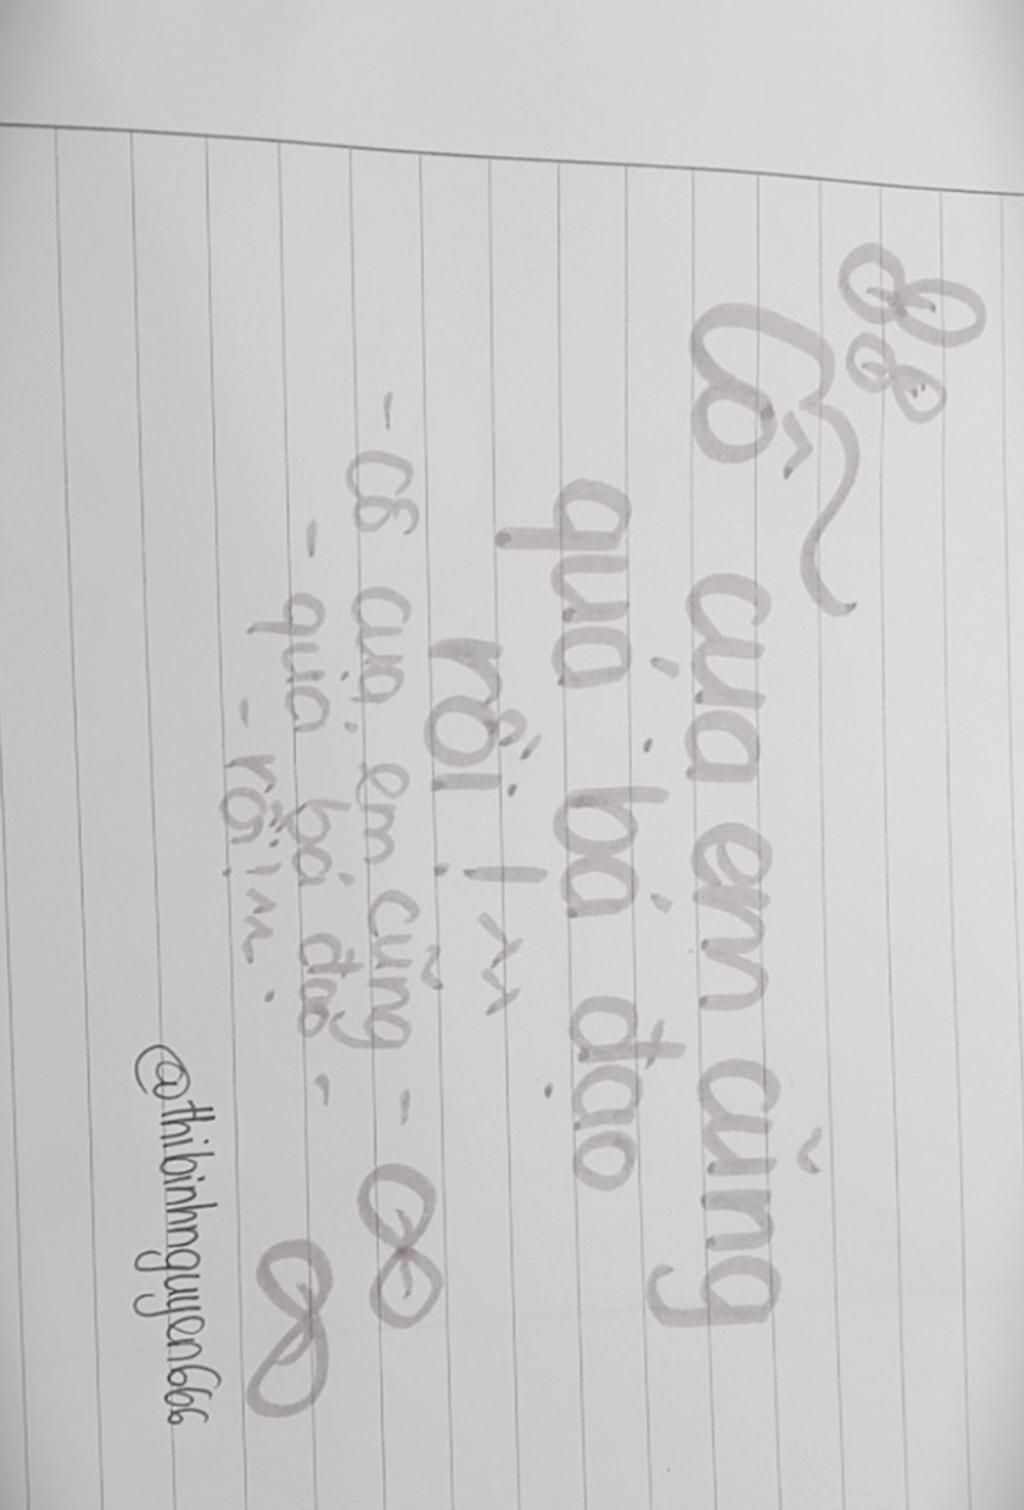 Cô của em cũng
quá bá đạo
rồi!
- Cô của em cũng -
- quá bá đạo -
- rồi!
@thibinhnguyen666